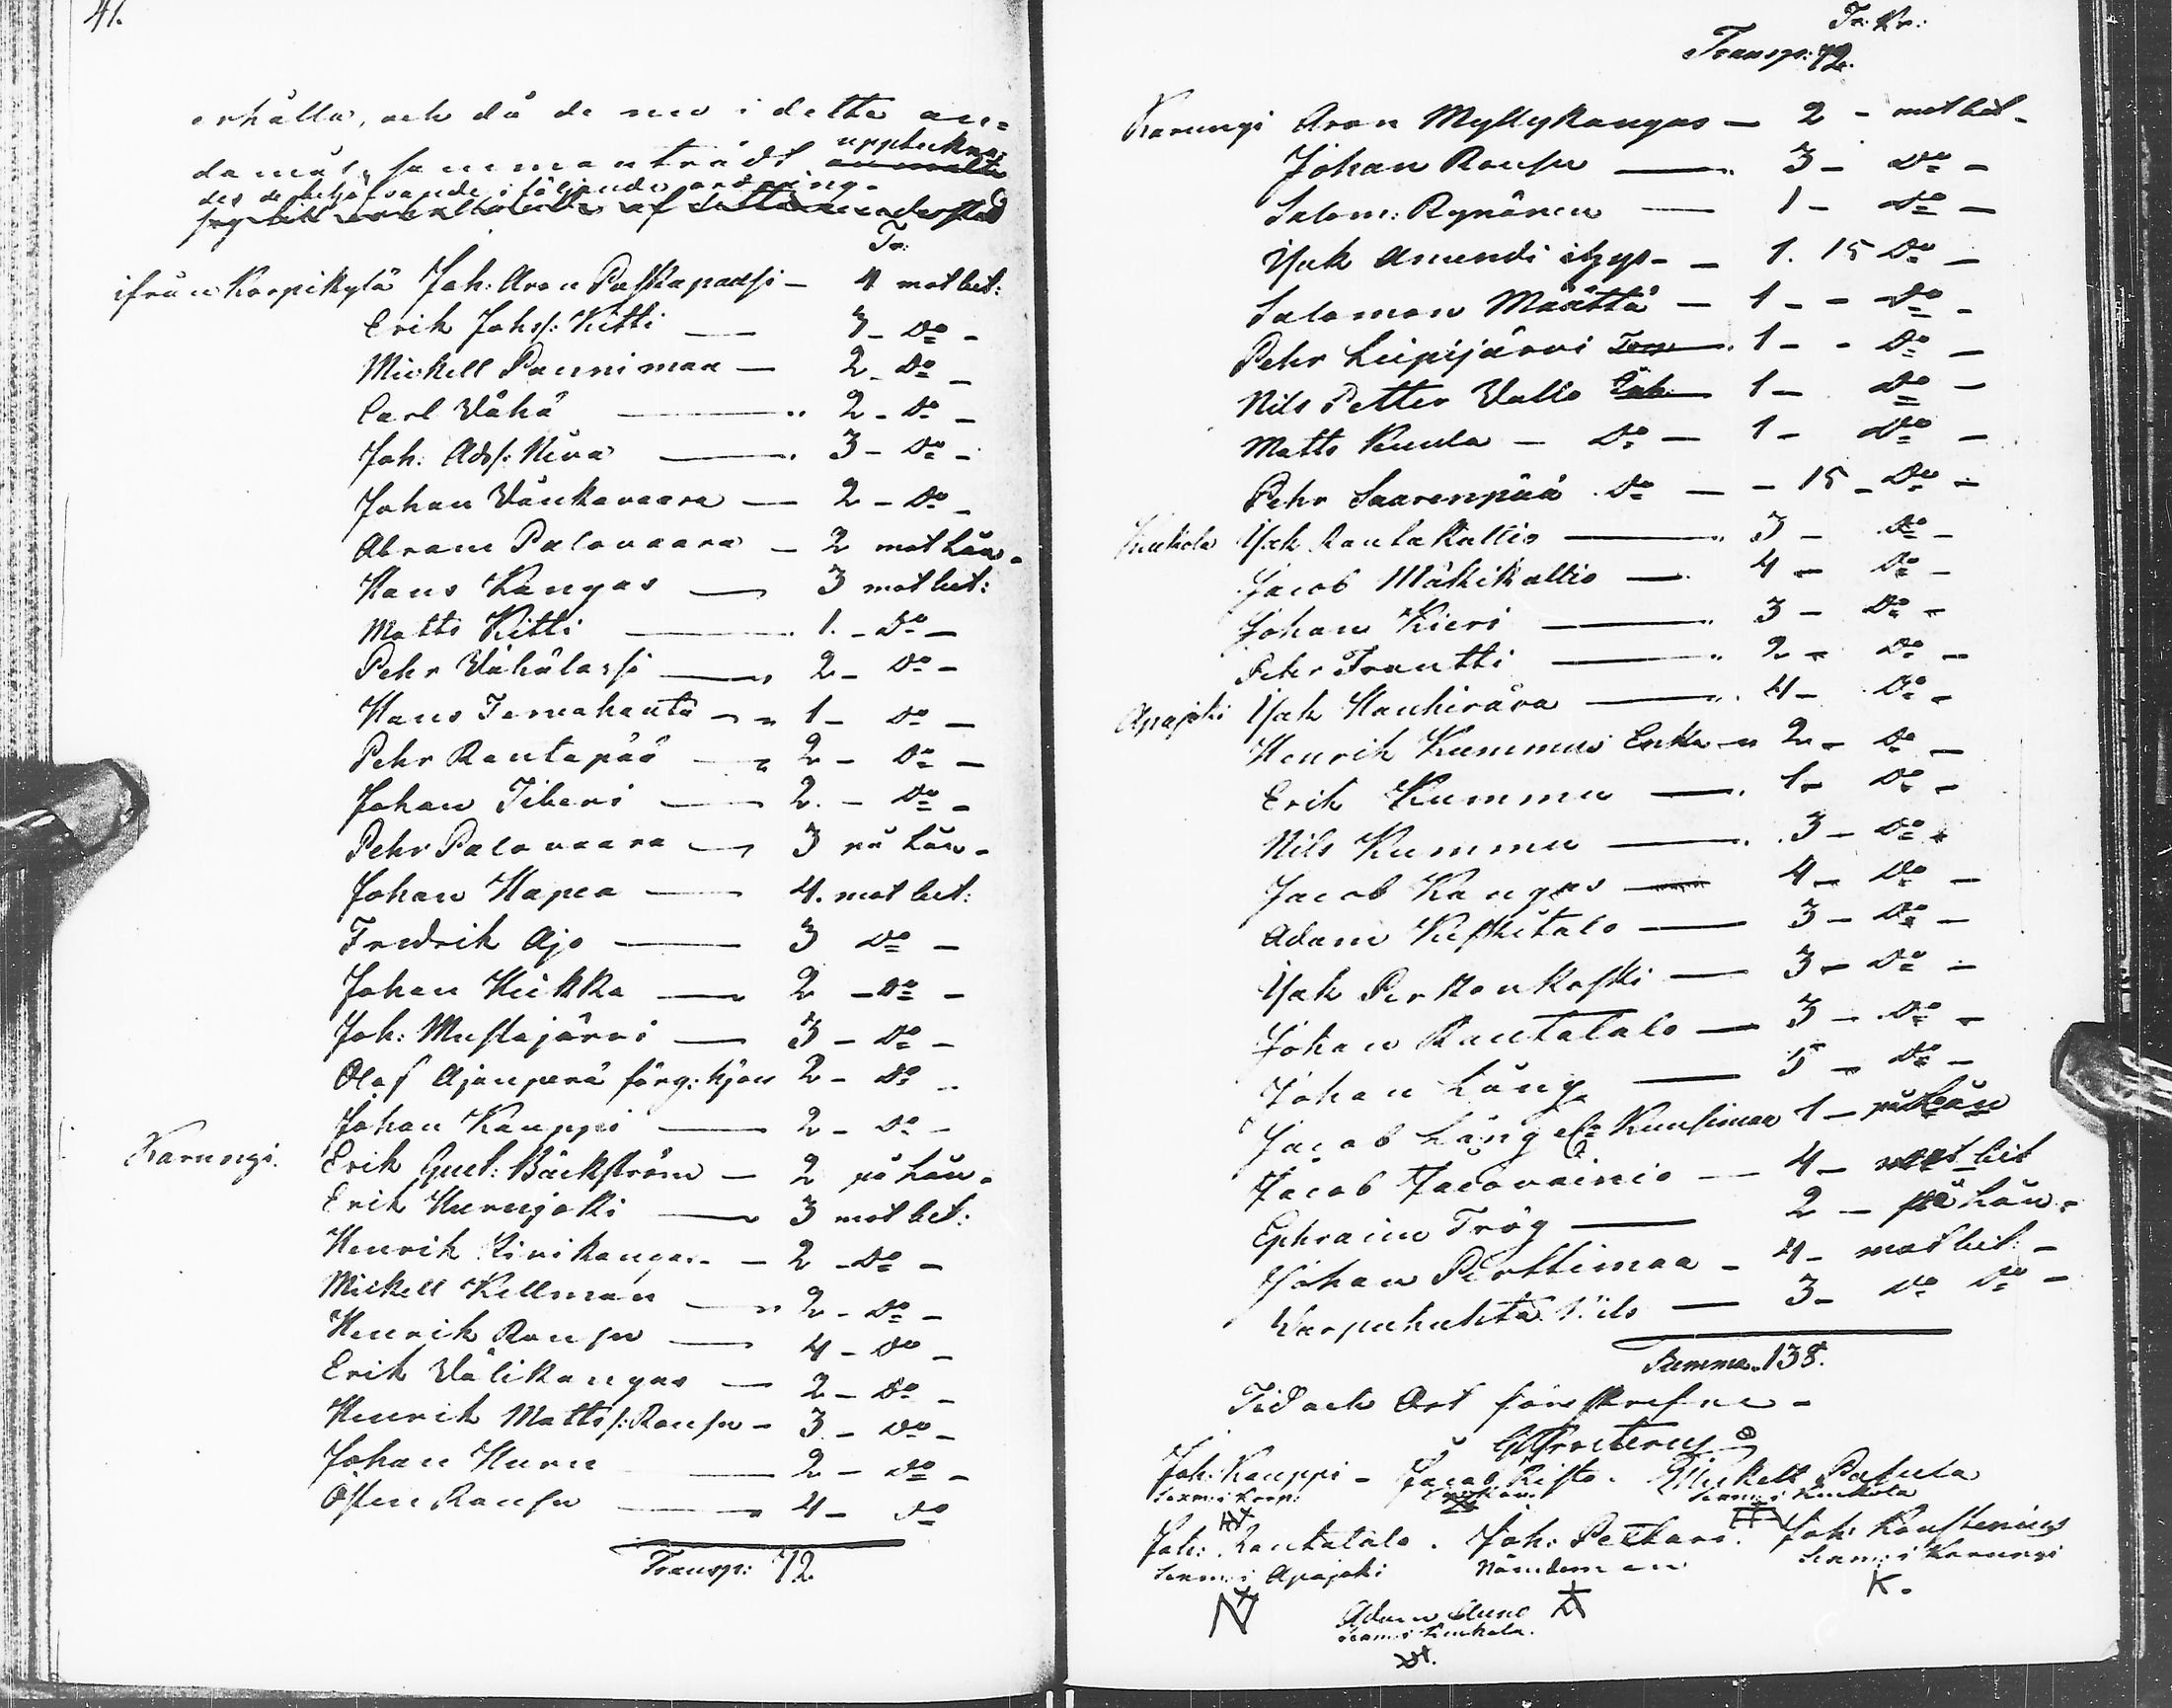 41.
erhålla, och då de nu i detta än-
damål, sammanträdt upptekna-
des de behöfvande i följande ordning.
Tr:
ifrån Korpikylä Joh: Aron Paskapaasi — 4 mot bet:
Erik Johss: Kitti — 3 - Do -
Mickell Panniman — 2 - Do -
Carl Vähä — 2 - Do -
Joh: Ads: Niva — 3 - Do -
Johan Vänkavaara — 2 - Do -
Abram Palovaara — 2 mot Lån -
Hans Kangas — 3 mot bet:
Matts Kitti — 1. - Do -
Pehr Vähälassi — 2 - Do -
Hans Tervahauta — 1 - Do -
Pehr Rautapää — 2 - Do -
Johan Tiberi — 2. - Do -
Pehr Palovaara — 3 på Lån -
Johan Hapea — 4. mot bet:
Fredrik Ajo — 3 Do -
Johan Heikka — 2 - Do -
Joh: Mustajärvi — 3 - Do -
Olof Ajanperä färg: hjon 2 - Do -
Johan Kauppi — 2 - Do -
Karungi. Erik Gust: Bäckström — 2 på Lån -
Erik Hurujoki — 3 mot bet:
Henrik Kivikangas — 2 - Do -
Mickell Kellman — 2 - Do -
Henrik Raufu — 4 - Do -
Erik Välikangas — 2 - Do -
Henrik Mattss: Raufu — 3 - Do -
Johan Huru — 2 - Do -
Östen Raufu — 4 - Do
Transp: 72
Tr: Kr:
Transp: 72.
Karungi Aron Myllykangas — 2 - mot bet -
Johan Raufu — 3 - Do -
Salom: Rynänen — 1 - Do -
Isak Amundi — 1. 15 Do -
Salomon Määttä — 1 - - Do -
Pehr Leipijärvi — 1 - - Do -
Nils Petter Vallo — 1 - Do -
Matts Kuula — Do — 1 - Do -
Pehr Saarenpää Do — - 15 - Do -
Kuckola Isak Rautakallio — 3 - Do -
Jacob Mäkikallio — 4 - Do -
Johan Kieri — 3 - Do -
Pehr Frantti — 2 - Do -
Apajoki Isak Hauhirära — 4 - Do -
Henrik Kummus Enka — 2 - Do -
Erik Kummu — 1 - Do -
Nils Kummu — 3 - Do -
Jacob Kangas — 4 - Do -
Adam Keskitalo — 3 - Do -
Isak Parkonkoski — 3 - Do -
Johan Rautatalo — 3 - Do -
Johan Lång — 5 - Do -
Jacob Lång Kuusimaa 1 - på Lån
Jacob Jacovainio — 4 - mot bet
Ephraim Trög — 2 - på Lån -
Johan Perttimaa — 4 - mot bet: -
Warpuhuhta Nils — 3 - Do Do -
Summa 138.
Tid och Ort föreskrefne -
Joh: Kauppi - Jacob Risto. Mickell Pasula
Sexm: i Korp: Sexm: i Kuckola
Joh: Rautatalo. Joh: Pekkari. Joh: Konstenius
Sexm: i Apajoki Nämdeman Sexm: i Karungi
K.
Adam Auno
Sexm: i Kuckola.